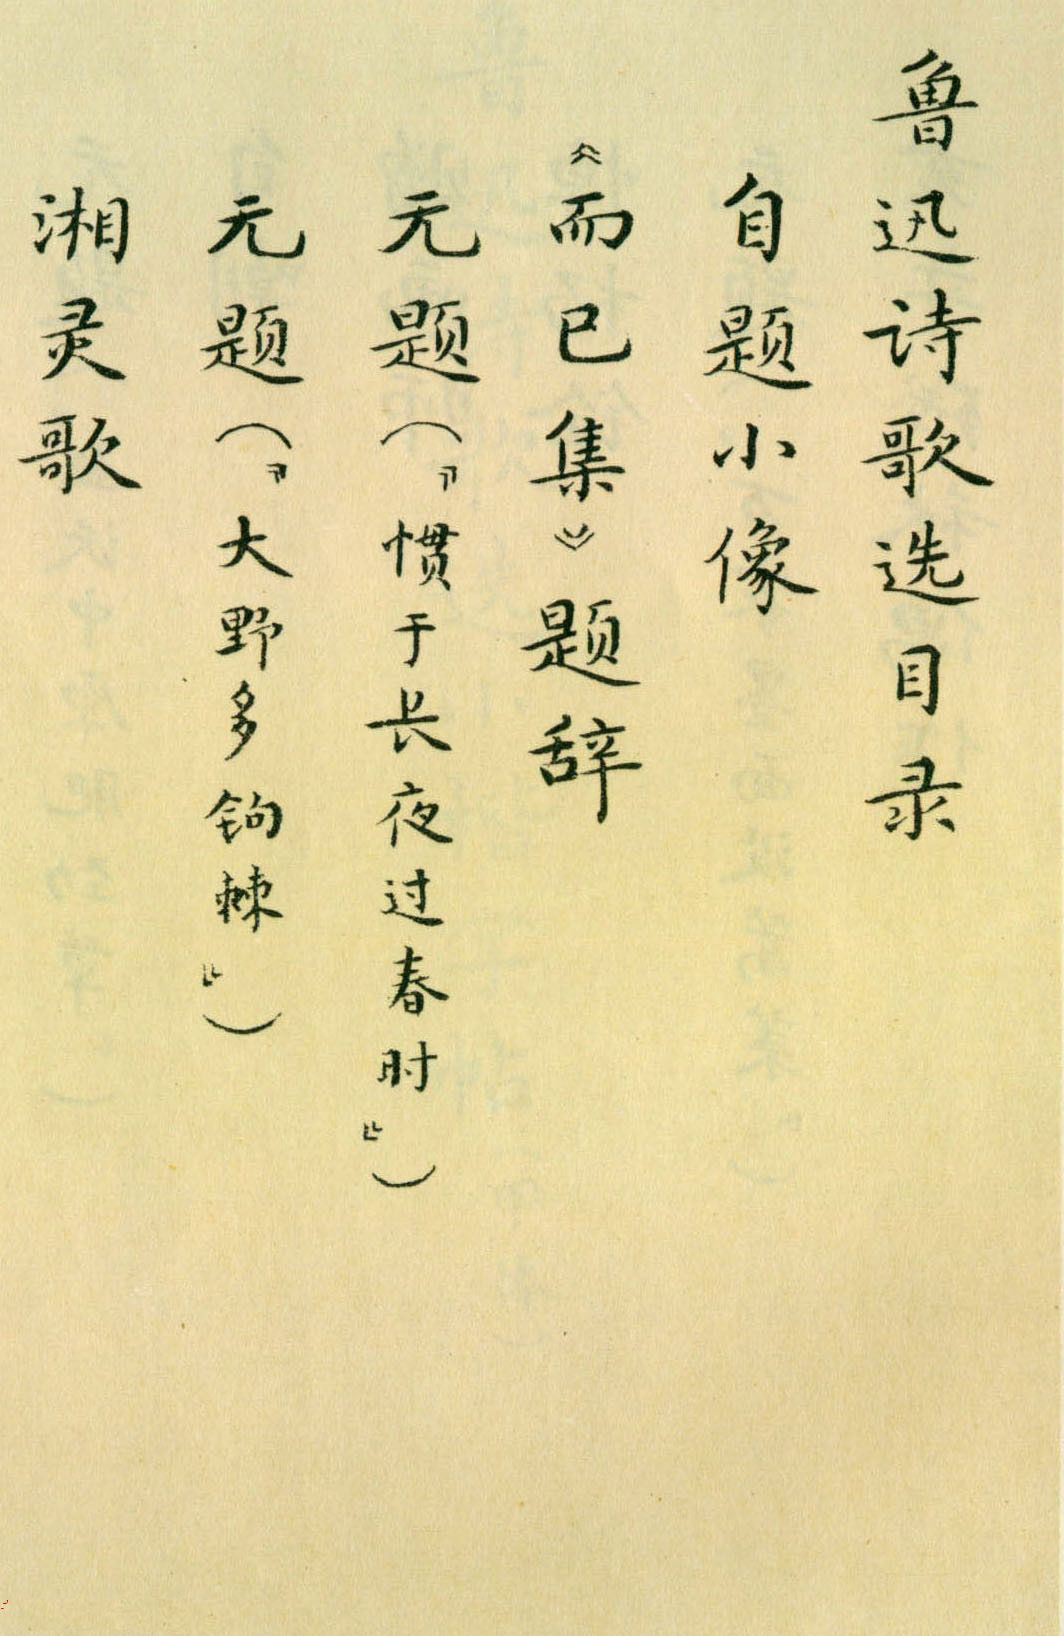 鲁迅诗歌选目录
自题小像
《而已集》题辞
无题（『惯于长夜过春时』）
无题（『大野多钩棘』）
湘灵歌